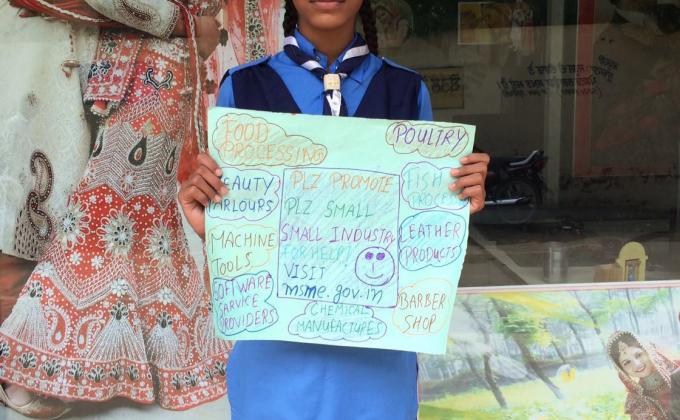 FOOD
PROCESSING
POULTRY
BEAUTY
PARLOURS
PLZ PROMOTE
PLZ SMALL
SMALL INDUSTRY
FOR HELP!
VISIT
msme.gov.in
FISH
PROCESS
MACHINE
TOOLS
LEATHER
PRODUCTS
SOFTWARE
SERVICE
PROVIDERS
CHEMICAL
MANUFACTURES
BARBER
SHOP